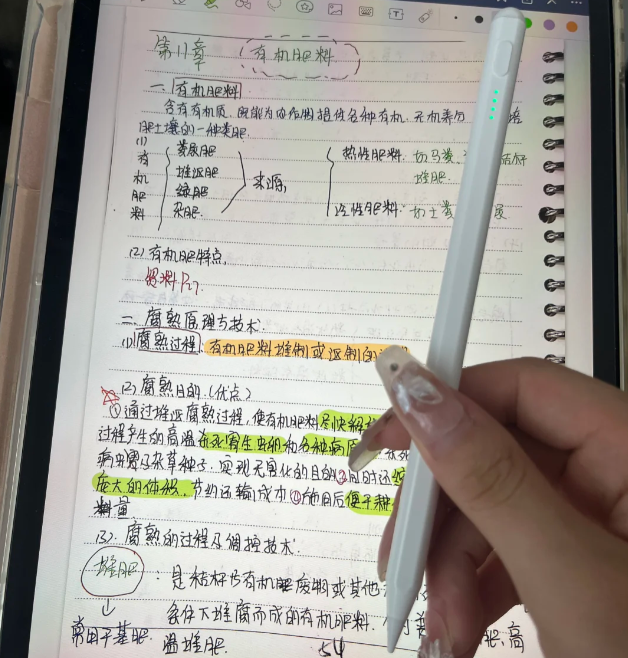 第11章 有机肥料
一 有机肥料
含有有机质,既能为农作物提供各种有机、无机养分
肥土壤的一种类肥.
(1) 有机肥料
粪尿肥
堆沤肥
绿肥
杂肥.
来源,
热性肥料: 如马粪、 秸秆
堆肥.
冷性肥料: 如土粪
(2) 有机肥特点,
资料P27
二 腐熟原理与技术.
(1) 腐熟过程: 有机肥料堆制或沤制的
(2) 腐熟目的.(优点)
①通过堆沤腐熟过程,使有机肥料尽快
过程产生的高温杀死害生虫卵和各种病
病虫害及杂草种子.实现无害化的目的③同时还
庞大的体积,节约运输成本④施用后便于耕
料量
(3). 腐熟的过程及调控技术.
堆肥: 是秸秆与有机肥废物或其他
条件下堆腐而成的有机肥料. 肥、高
常用于基肥. 温堆肥.
54